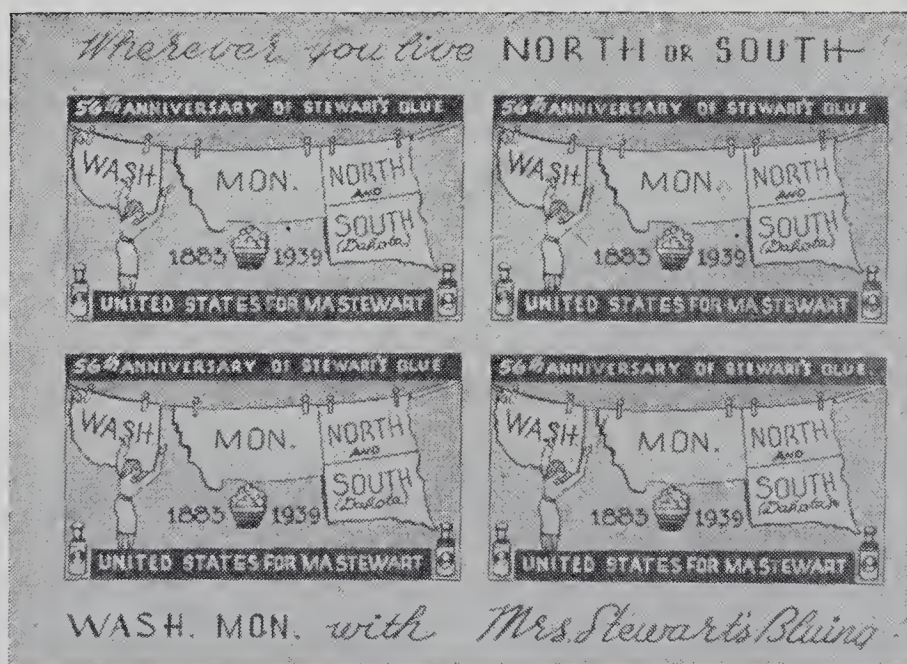 Wherever you live NORTH OR SOUTH
56th ANNIVERSARY OF STEWART'S BLUE
WASH.
MON.
NORTH
AND
SOUTH
(Dakota)
1883 1939
UNITED STATES FOR MA STEWART
56th ANNIVERSARY OF STEWART'S BLUE
WASH.
MON.
NORTH
AND
SOUTH
(Dakota)
1883 1939
UNITED STATES FOR MA STEWART
56th ANNIVERSARY OF STEWART'S BLUE
WASH.
MON.
NORTH
AND
SOUTH
(Dakota)
1883 1939
UNITED STATES FOR MA STEWART
56th ANNIVERSARY OF STEWART'S BLUE
WASH.
MON.
NORTH
AND
SOUTH
(Dakota)
1883 1939
UNITED STATES FOR MA STEWART
WASH. MON. with Mrs. Stewart's Bluing